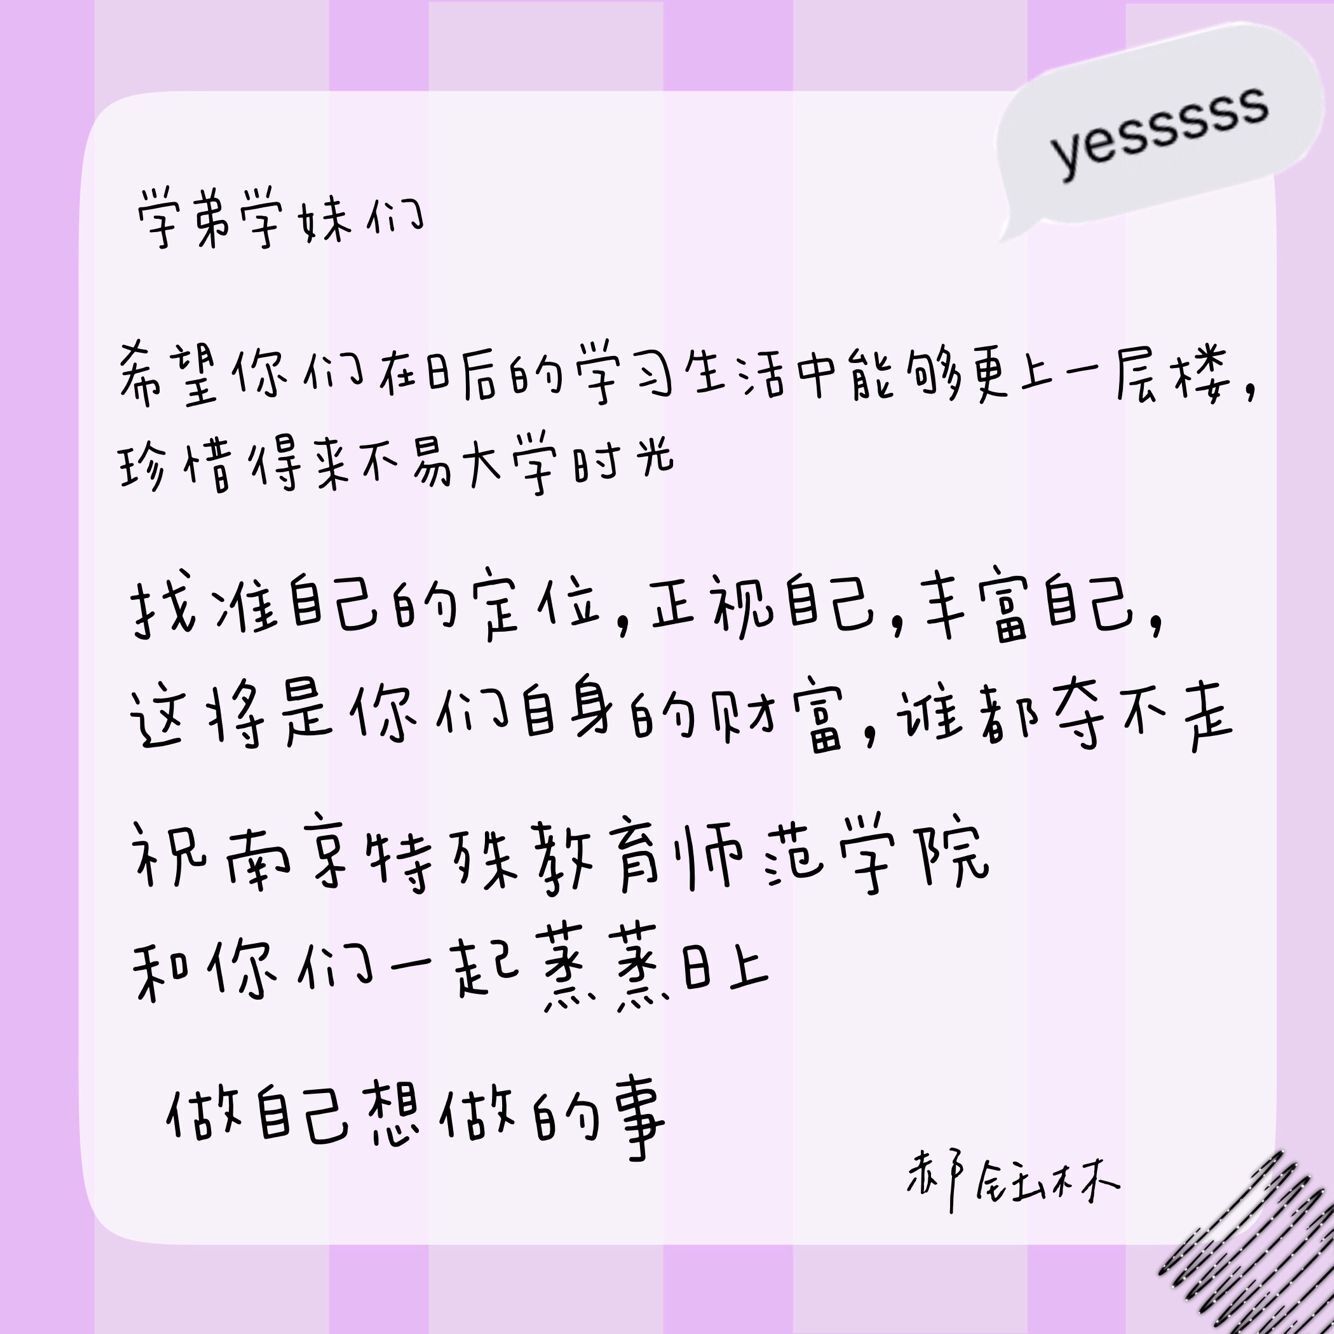 yesssss
学弟学妹们
希望你们在日后的学习生活中能够更上一层楼，
珍惜得来不易大学时光
找准自己的定位，正视自己，丰富自己，
这将是你们自身的财富，谁都夺不走
祝南京特殊教育师范学院
和你们一起蒸蒸日上
做自己想做的事
郝钰林